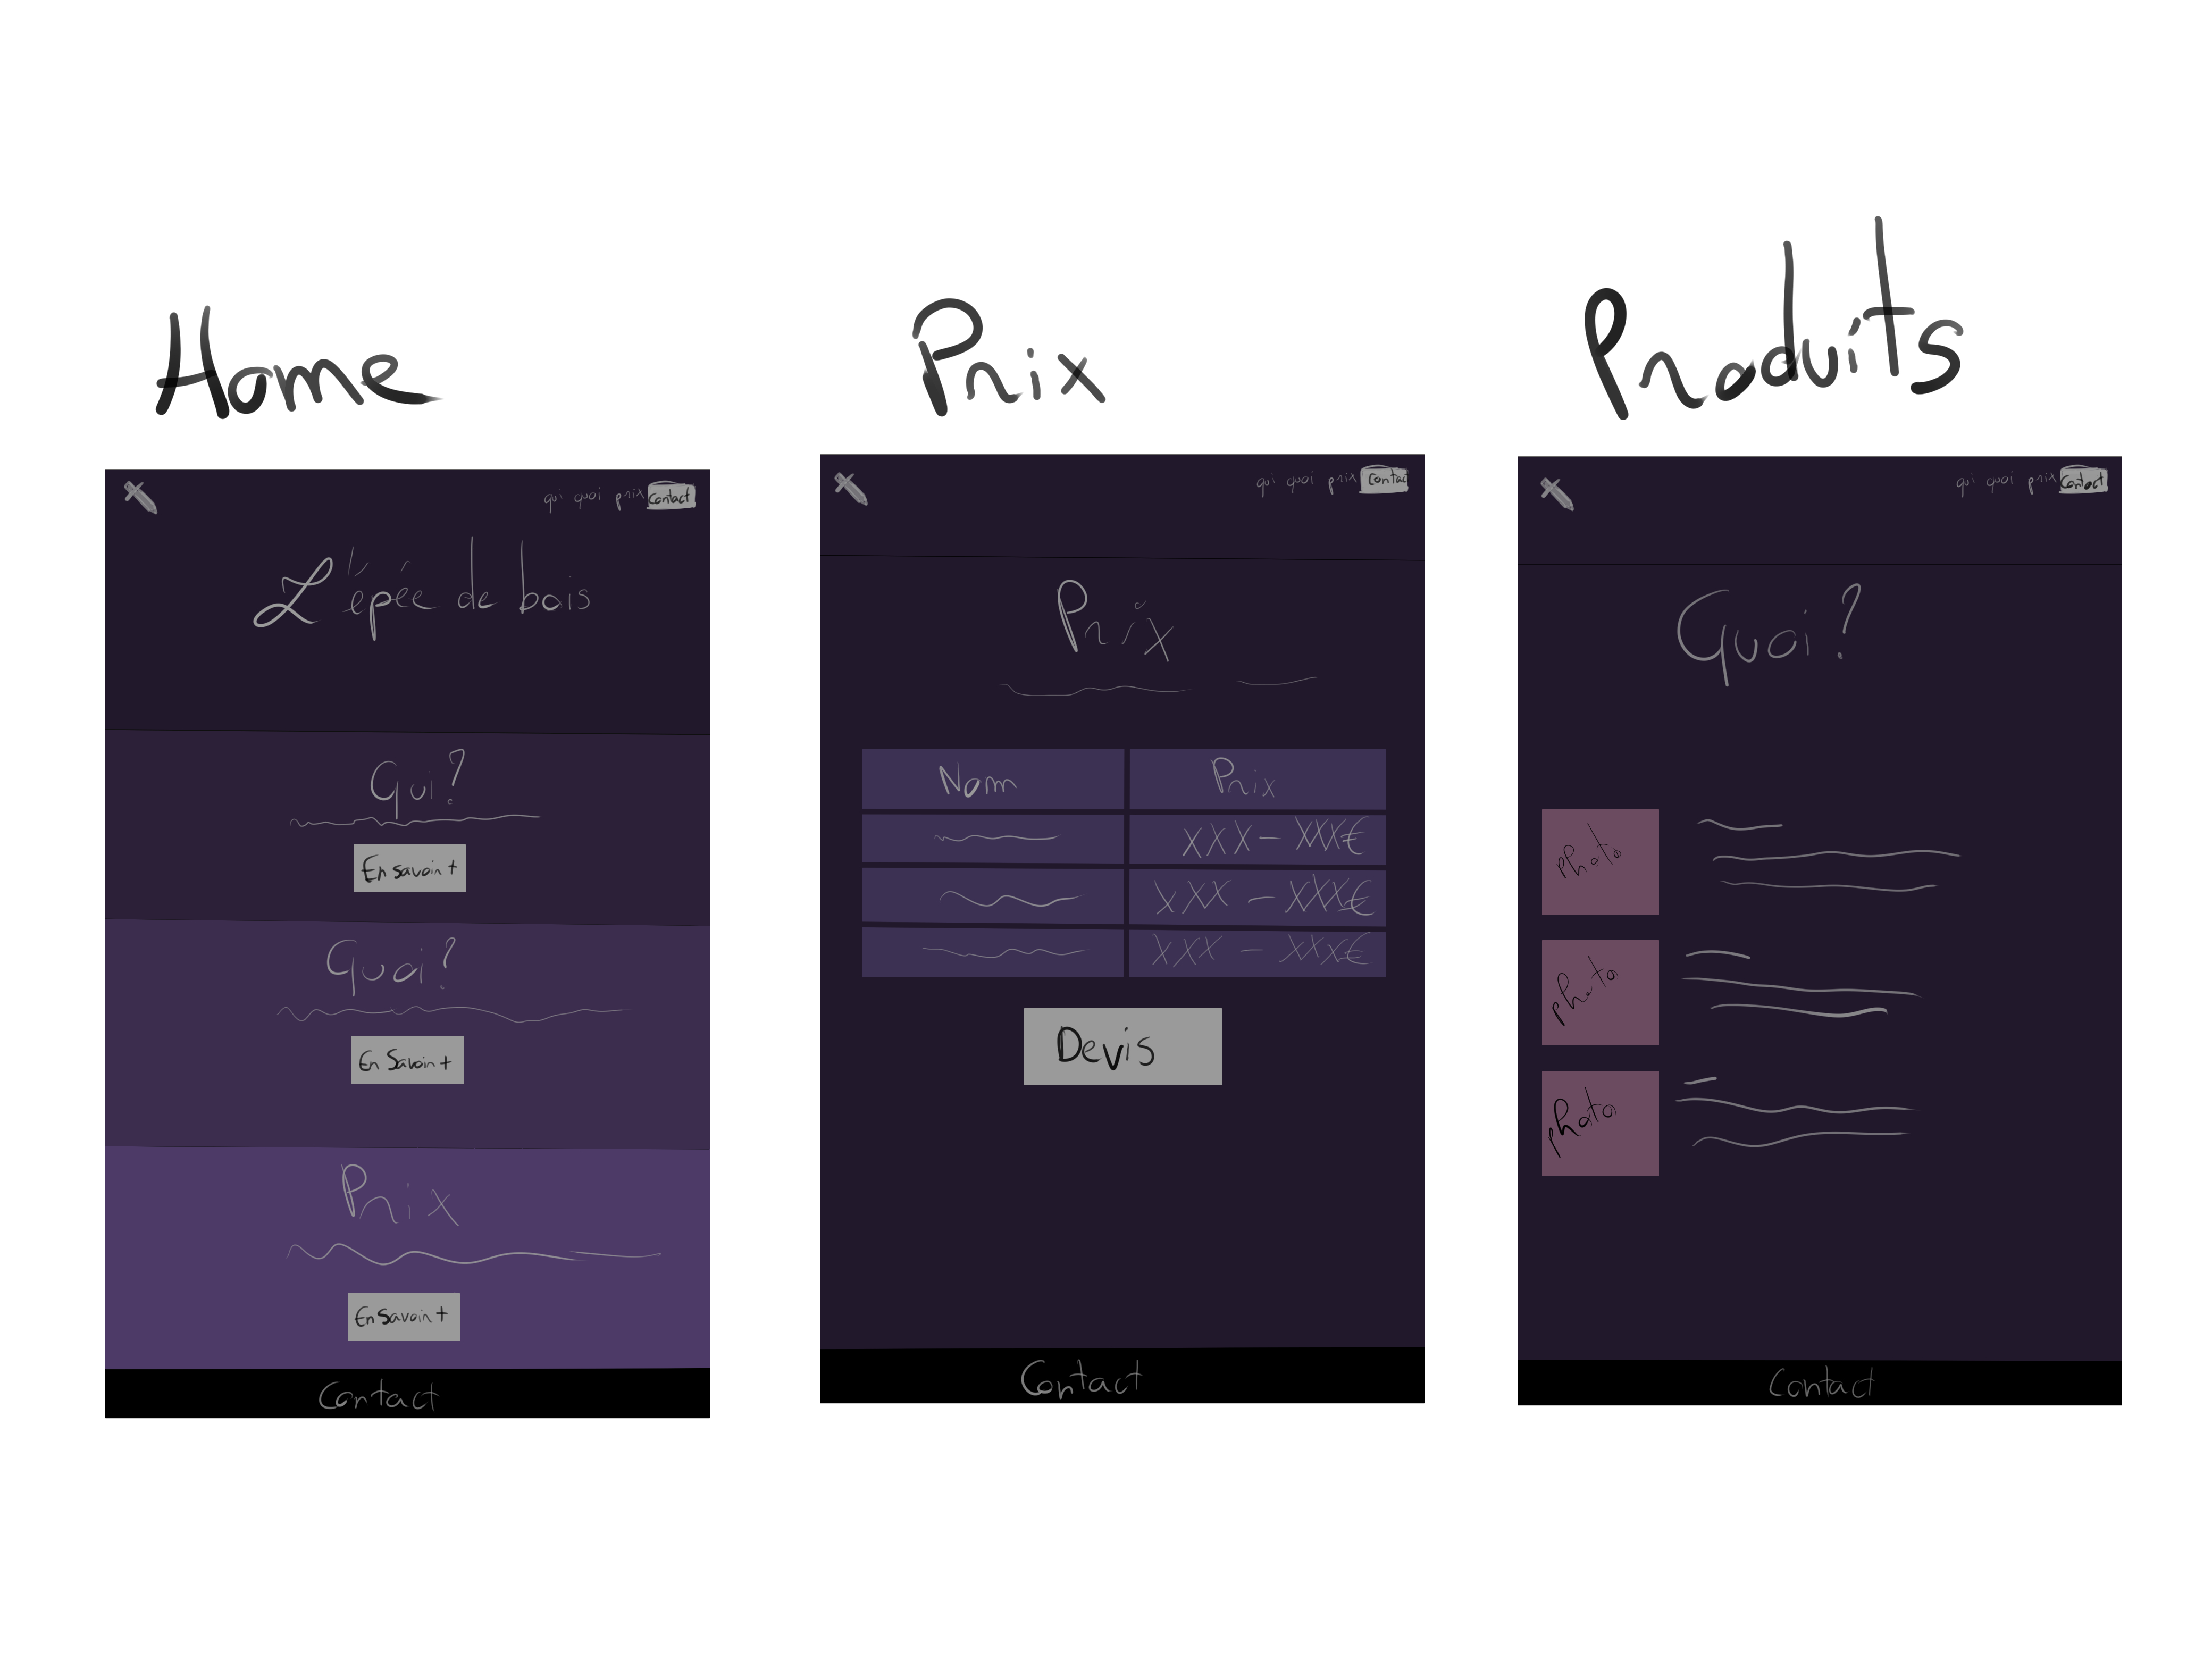 Home
qui quoi prix Contact
L'épée de bois
Qui?
En savoir +
Quoi?
En Savoir +
Prix
En Savoir +
Contact
Prix
qui quoi prix Contac
Prix
Nom Prix
XXX - XXX€
XXX - XXX€
XXX - XXX€
Devis
Contact
Produits
qui quoi prix Contact
Quoi?
Photo
Photo
Photo
Contact